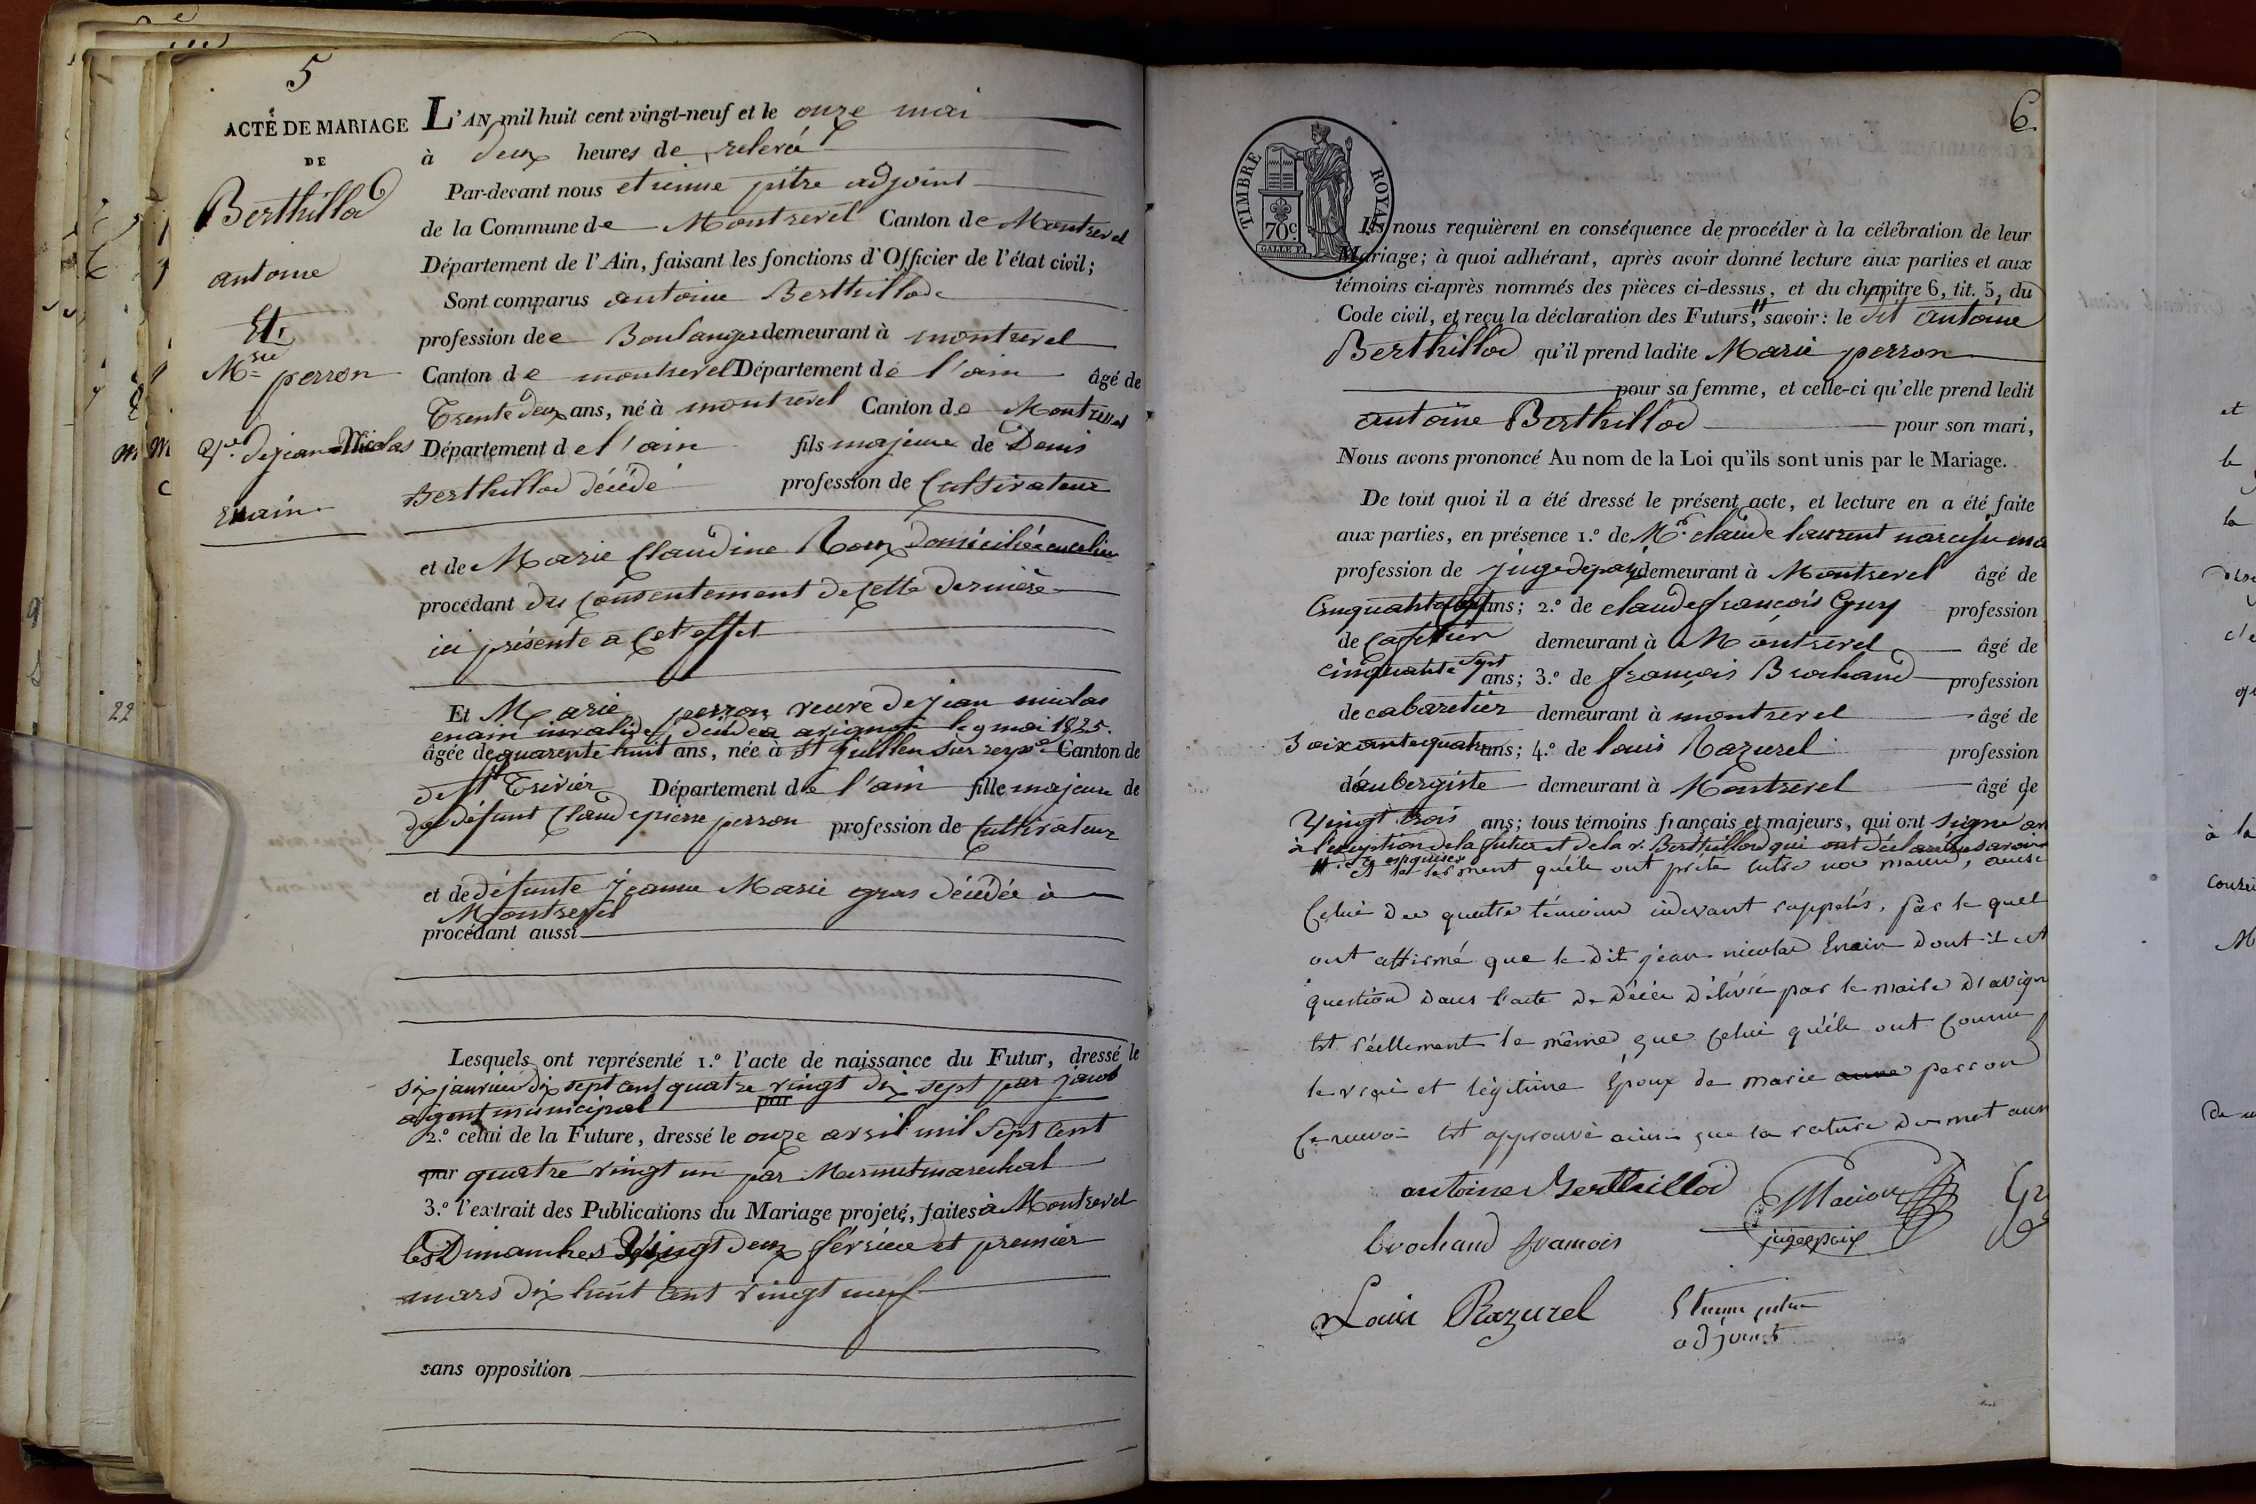 5
ACTE DE MARIAGE
DE
Berthillod
antoine
Et
M.rie perron
V.e de jean Nicolas
Enain
L'AN mil huit cent vingt-neuf et le onze mai
à deux heures de relevée
Par-devant nous etienne pitre adjoint
de la Commune de Montrevel Canton de Montrevel
Département de l'Ain, faisant les fonctions d'Officier de l'état civil;
Sont comparus antoine Berthillod
profession de Boulanger demeurant à montrevel
Canton de montrevel Département de l'ain âgé de
Trente deux ans, né à montrevel Canton de Montrevel
Département de l'ain fils majeur de Denis
Berthillod décédé profession de Cultivateur
et de Marie Claudine Roux domiciliée en ce lieu
procédant du Consentement de Cette dernière
ici présente a Cet effet
Et Marie perron veuve de jean nicolas
enain invalide, décédé a avignon le 9 mai 1825.
âgée de quarente huit ans, née à St jullien sur reyss.e Canton de
de St Trivier Département de l'ain fille majeure de
de défunt Claude pierre perron profession de Cultivateur
et de défunte jeanne Marie gras décédée à
Montrevel
procédant aussi
Lesquels ont représenté 1.º l'acte de naissance du Futur, dressé le
six janvier dix sept cent quatre vingt dix sept par jacob
agent municipal par
2.º celui de la Future, dressé le onze avril mil sept cent
par quatre vingt un par Mermet marechal
3.º l'extrait des Publications du Mariage projeté, faites à Montrevel
les Dimanches Vingt deux février et premier
mars dix huit cent vingt neuf
sans opposition
6
TIMBRE ROYAL
70c
GALLE F.
Ils nous requièrent en conséquence de procéder à la célébration de leur
Mariage; à quoi adhérant, après avoir donné lecture aux parties et aux
témoins ci-après nommés des pièces ci-dessus, et du chapitre 6, tit. 5, du
Code civil, et reçu la déclaration des Futurs, savoir: le dit antoine
Berthillod qu'il prend ladite Marie perron
pour sa femme, et celle-ci qu'elle prend ledit
antoine Berthillod pour son mari,
Nous avons prononcé Au nom de la Loi qu'ils sont unis par le Mariage.
De tout quoi il a été dressé le présent acte, et lecture en a été faite
aux parties, en présence 1.º de M.r claude laurent narcisse
profession de juge de paix demeurant à Montrevel âgé de
Cinquante ans; 2.º de claude françois Guy profession
de cafetier demeurant à Montrevel âgé de
cinquante sept ans; 3.º de françois Brochand profession
de cabaretier demeurant à montrevel âgé de
Soixante quatre ans; 4.º de louis Razurel profession
d'aubergiste demeurant à Montrevel âgé de
Vingt trois ans; tous témoins français et majeurs, qui ont signé
à l'exception de la future et de la v. Berthillod qui ont déclaré
et le serment qu'ils ont prêté entre nos mains, ainsi
Celui des quatre témoins cidevant rappelés, par le quel
ont affirmé que le dit jean nicolas Enain dont il est
question dans l'acte de décès délivré par le maire d'avign
Est réellement le même que celui qu'ils ont connu
le vrai et légitime époux de marie anne perron
Ce renvoi Est approuvé ainsi que la rature du mot
antoine Berthillod
juge de paix
brochand francois
Louis Razurel
Etienne pitre
adjoint
22